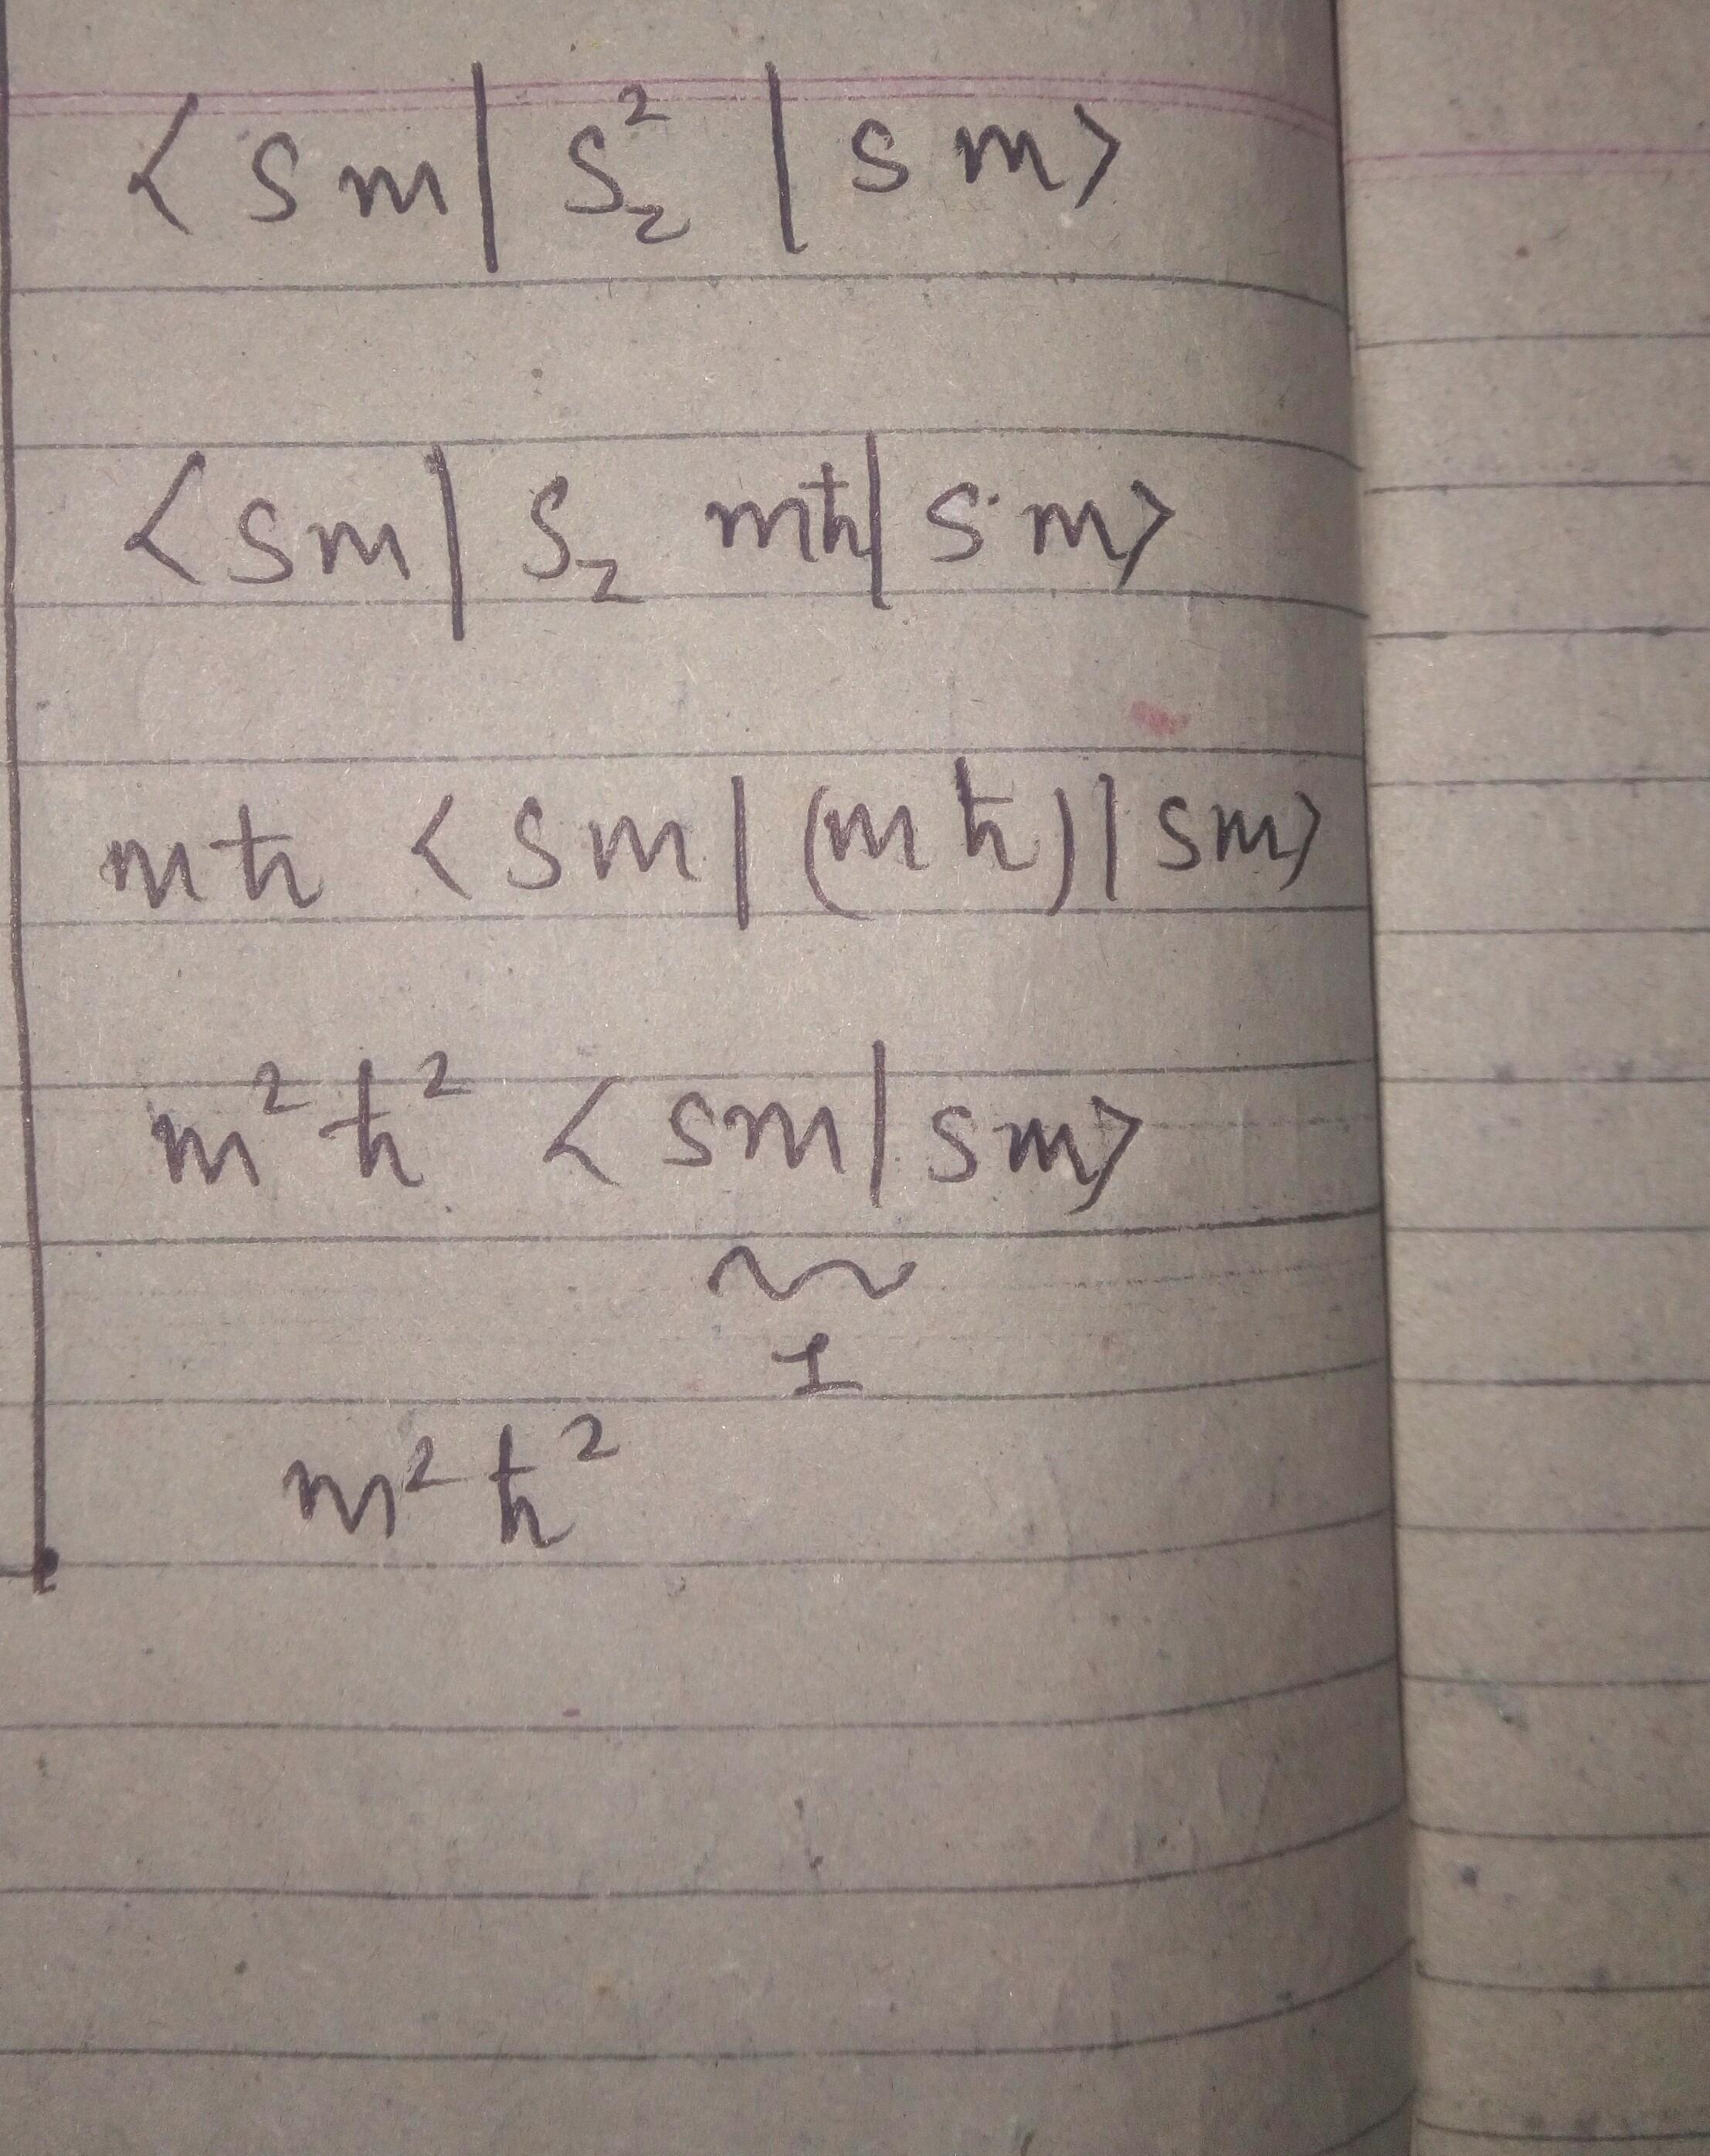 ⟨ s m | S_z² | s m ⟩
⟨ s m | S_z mħ | s m ⟩
mħ ⟨ s m | (m ħ) | s m ⟩
m² ħ² ⟨ s m | s m ⟩
1
m² ħ²